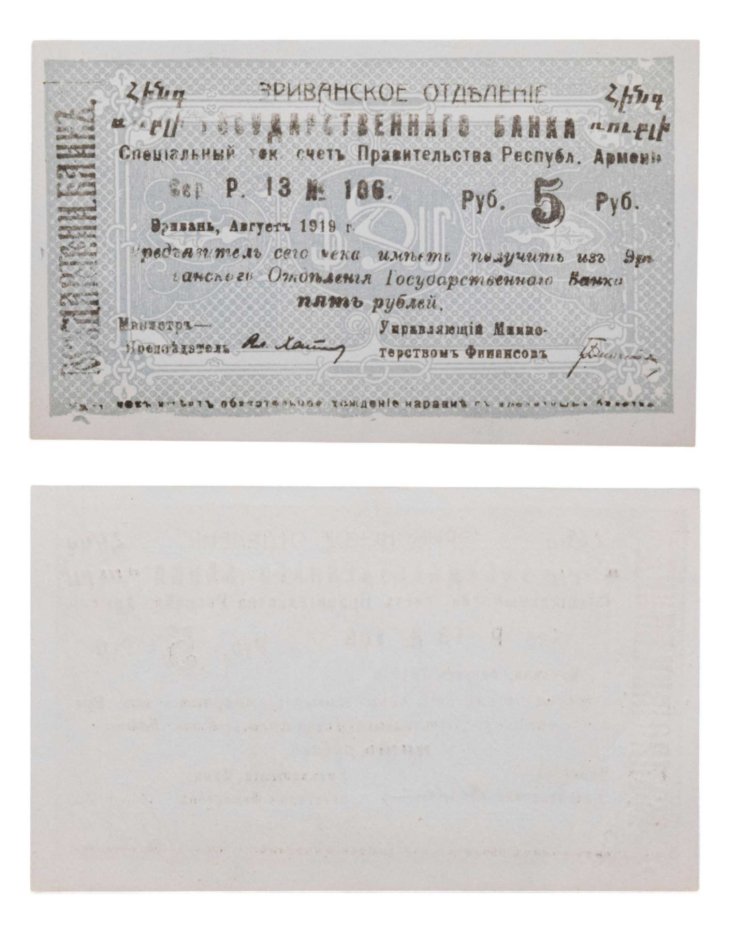 Հինգ ЭРИВАНСКОЕ ОТДѢЛЕНІЕ Հինգ
ГОСУДАРСТВЕННАГО БАНКА ռուբլի
Спеціальный тек. счетъ Правительства Республ. Арменіи
Сер Р. 13 № 106.
Руб. 5 Руб.
Эривань, Августъ 1919 г.
Предъявитель сего чека имѣетъ получить изъ Эри
ванскаго Отдѣленія Государственнаго Банка
пять рублей.
Министръ—
Предсѣдатель
Управляющій Минис-
терствомъ Финансовъ
чекъ имѣетъ обязательное хожденіе наравнѣ съ кредитными билетами